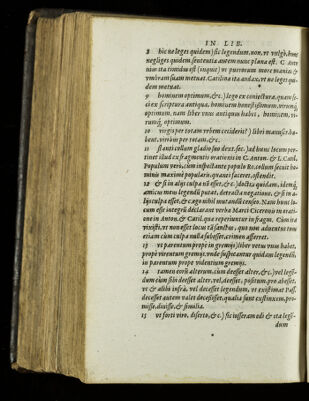 IN LIB.
8 hic ne leges quidem) sic legendum. non, vt vulgò, hunc
negliges quidem sententia autem nunc plana est. C. Anto
nius ita timidus est (inquit) vt puerorum more maneis &
vmbram suam metuat. Catilina ita audax, vt ne leges qui
dem metuat.
9 hominem optimum, &c.) lego ex coniectura, quam so-
ci ex scriptura antiqua, hominem honestissimum, virumq́;
optimum. nam liber vnus antiquus habet, hominem, vi-
rumq́; optimum.
10 virgis per totam vrbem ceciderit?) libri manuscr. ha-
bent, verbera per totam, &c.
11 stanti collum gladio suo dext. sec.) ad hunc locum per-
tinet illud ex fragmentis orationis in C. Anton. & L. Catil.
Populum verò, cùm inspectante populo Ro. collum secuit ho-
minis maximè popularis, quanti faceret, ostendit.
12 & si in aliqs culpa nō esset, &c.) docti quidam, idemq́;
amici mei legendū putant, detracta negatione, & si in a-
lijs culpa esset, & ego nihil mutandū censeo. Nam hunc lo-
cum esse integrū declarant verba Marci Ciceronis in orati-
one in Anton. & Catil. quæ reperiuntur in fragm. Cùm ita
vixisti, vt non esset locus tā sanctus, quo non aduentus tuus
etiam cùm culpa nulla subesset, crimen afferret.
13 vt parentum prope in gremijs) liber vetus vnus habet,
propè virentum gremijs. vnde suspicantur quidam legendū,
in parentum prope videntium gremijs.
14 tamen eorū alterum, cùm deesset alter, &c.) vel legē-
dum cùm sibi deesset alter, vel, deesset, positum, pro abesset,
vt & alibi infrà. vel decesset legendum, vt existimat Pall.
decesset autem valet decessisset. qualia sunt extinxem, pro-
misse, diuisse, & similia.
15 vt forti viro, diserto, &c.) sic iusseram edi & ita legē-
dum